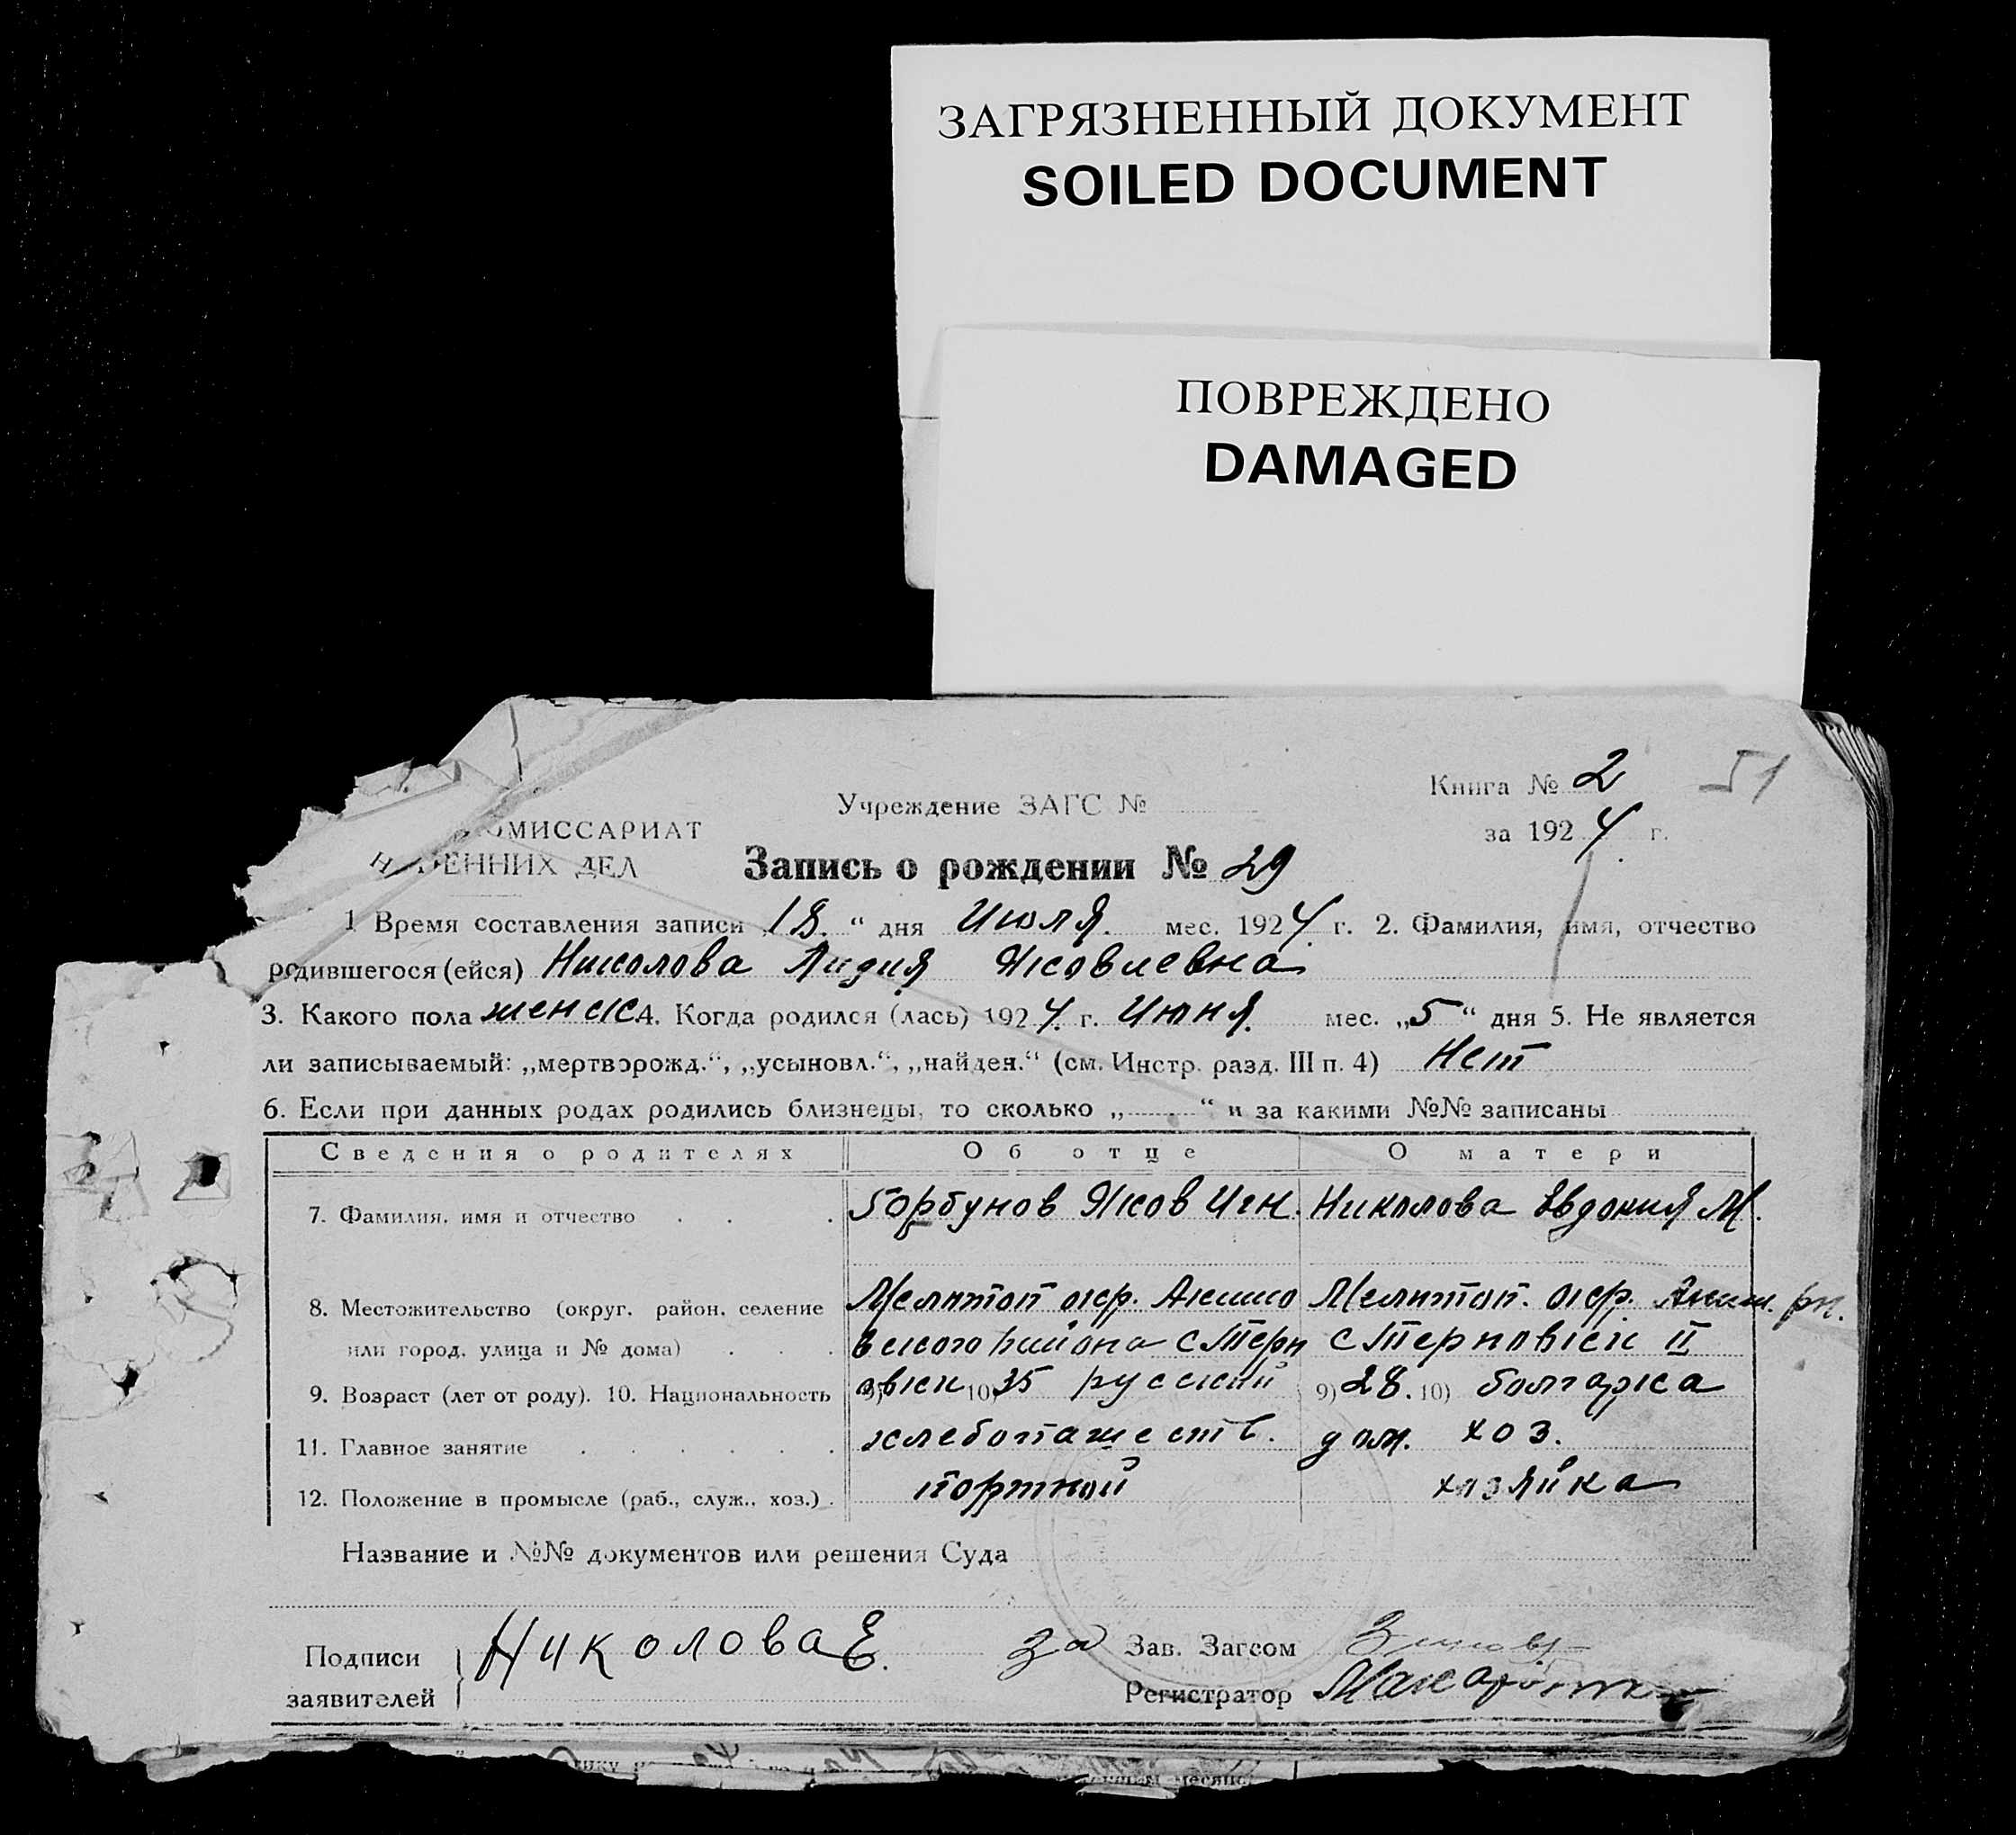 ЗАГРЯЗНЕННЫЙ ДОКУМЕНТ
SOILED DOCUMENT
ПОВРЕЖДЕНО
DAMAGED
Книга № 2 51
Учреждение ЗАГС №
за 1924 г.
ОМИССАРИАТ
ЕННИХ ДЕЛ
Запись о рождении № 29
1 Время составления записи „18.“ дня Июля. мес. 1924 г. 2. Фамилия, имя, отчество
родившегося (ейся) Николова Лидия Яковлевна
3. Какого пола женск. 4. Когда родился (лась) 1924. г. Июня. мес. „5“ дня 5. Не является
ли записываемый: „мертворожд.“, „усыновл.“, „найден.“ (см. Инстр. разд. III п. 4) Нет
6. Если при данных родах родились близнецы, то сколько „ “ и за какими №№ записаны
Сведения о родителях Об отце О матери
7. Фамилия, имя и отчество Горбунов Яков Игн. Николова Евдокия М.
8. Местожительство (округ, район, селение Мелитоп окр. Акимо Мелитоп. окр. Аким. рн.
или город, улица и № дома) вского района с Терн с Терновки II
9. Возраст (лет от роду). 10. Национальность 9) овки 10) 35 русский 9) 28. 10) болгарка
11. Главное занятие хлебопашеств. дом. хоз.
12. Положение в промысле (раб., служ., хоз.) портной хозяйка
Название и №№ документов или решения Суда
Подписи Николова Е. за Зав. Загсом
заявителей Регистратор